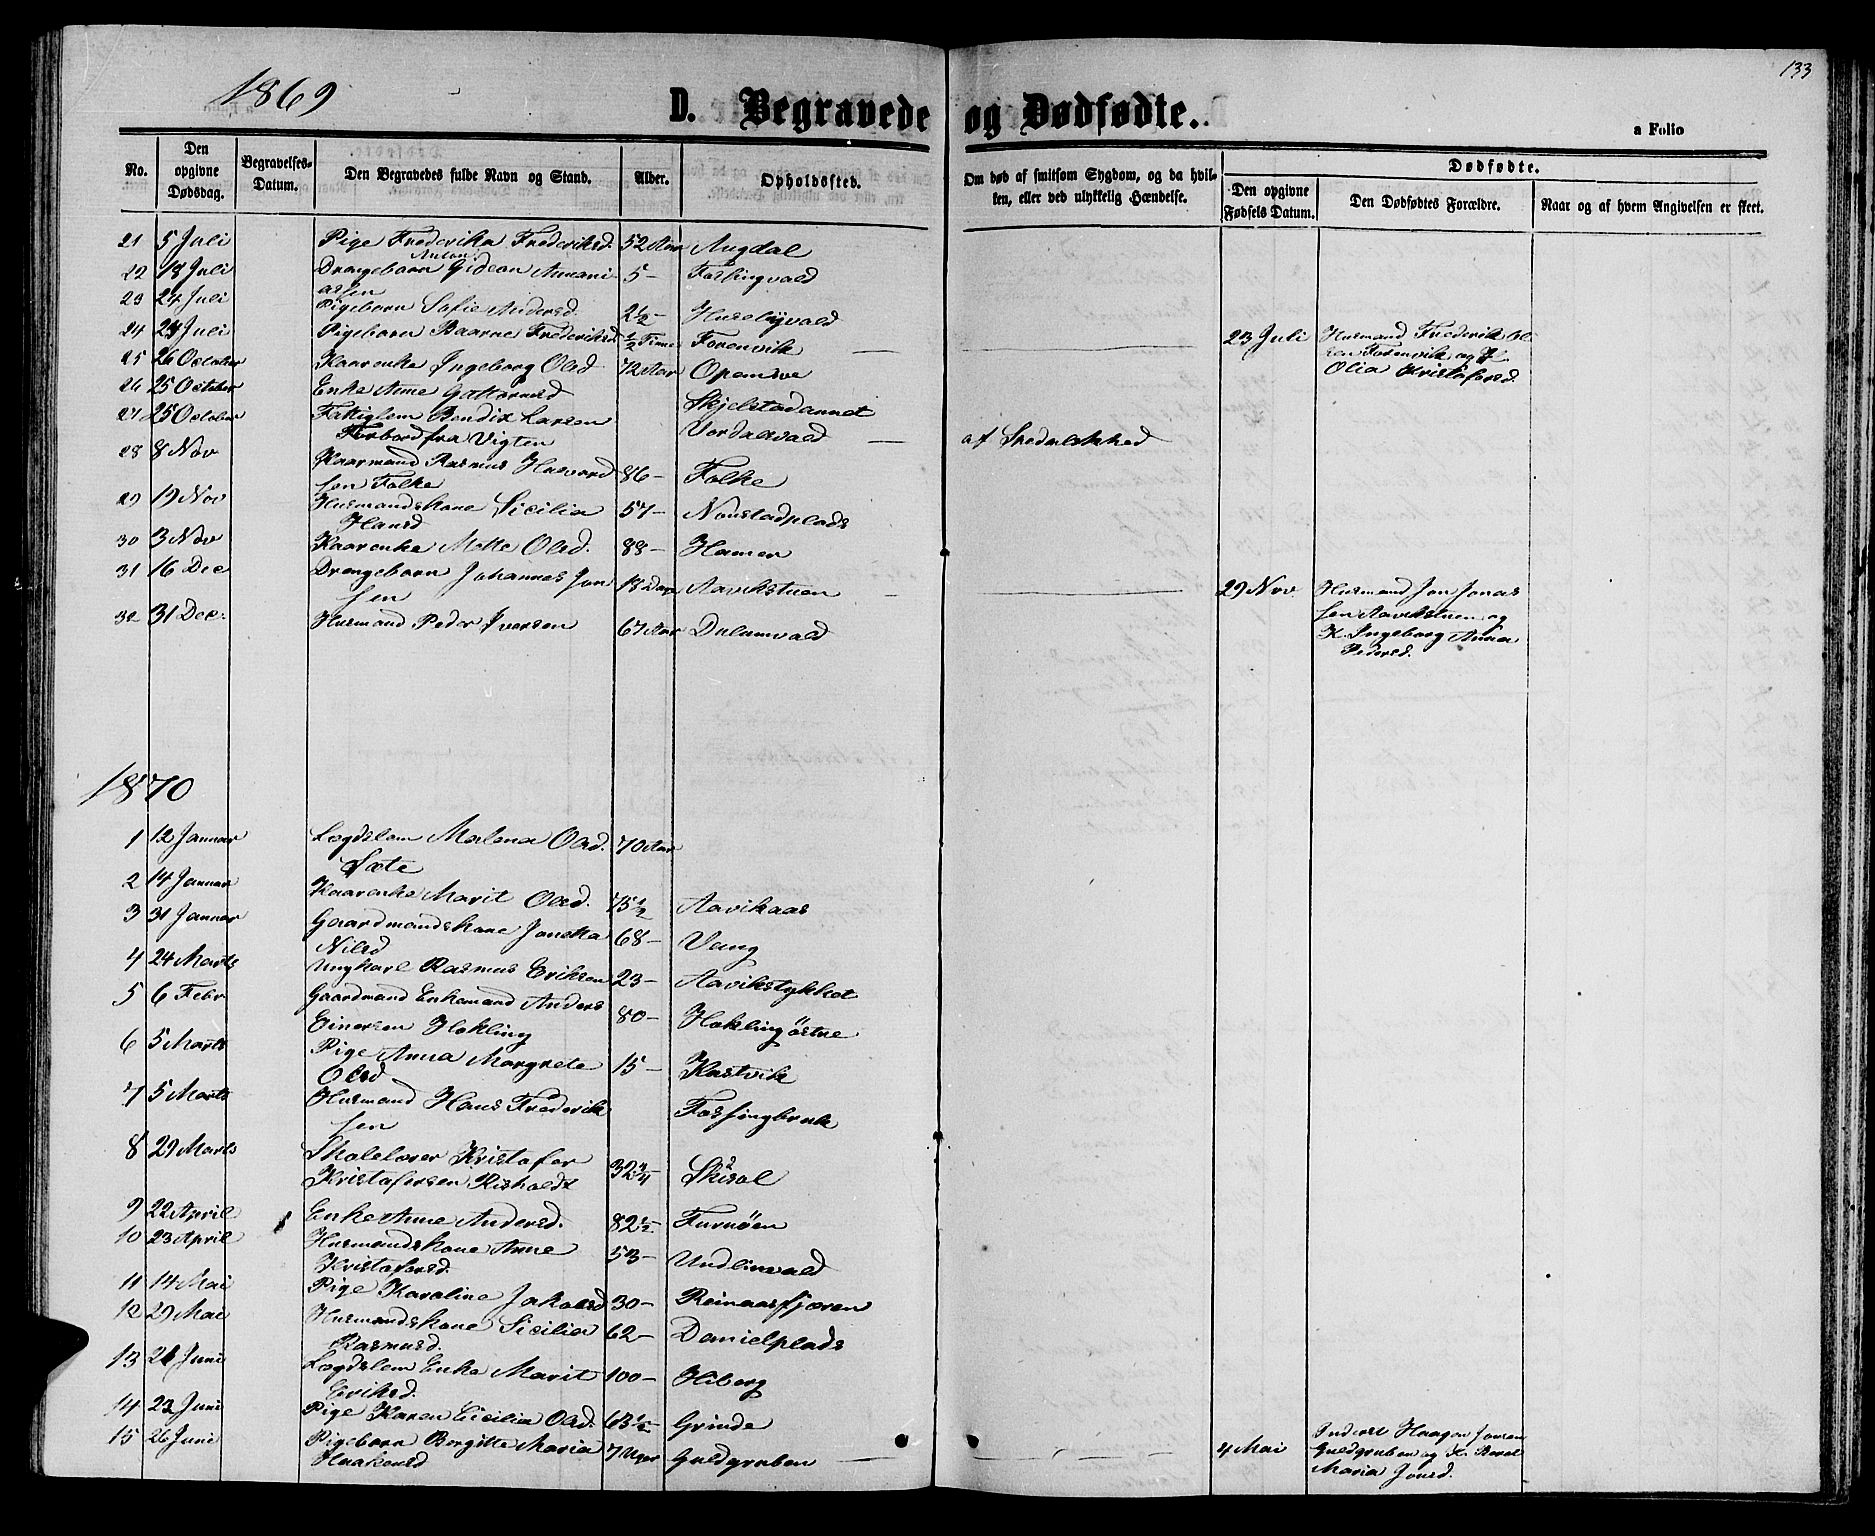 133
1869
D. Begravede og Dødfødte.
a Folio
No.
Den opgivne Dødsdag.
Begravelses-Datum.
Den Begravedes fulde Navn og Stand.
Alder.
Opholdssted.
Om død af smitsom Sygdom, og da hvilken, eller ved ulykkelig Hændelse.
Dødfødte.
Den opgivne Fødsels Datum.
Den Dødfødtes Forældre.
Naar og af hvem Angivelsen er skeet.
21 5 Juli Pige Frederika Frederiksd. 52 Aar Augdal
Anton
22 18 Juli Drengebarn Gideon Annani- 5- Foslingvald
assen
23 24 Juli Pigebarn Sofie Andersd. 2½- Husebyvald
24 24 Juli Pigebarn Baarne Frederiksd ½ Time Forenvik — 23 Juli Husmand Frederik Ol
sen Forenvik og H.
Olia Kristofersd.
25 26 October Kaarenke Ingeborg Olsd 72 Aar Opem
26 25 October Enke Anne Guttormsd Skjelstadannet
27 25 October Fattiglem Bendix Larsen Vordalsvald — af Spedalskhed
Forbord fra Vigten
28 8 Nov Kaarmand Rasmus Havard 86- Folke
sen Folke
29 19 Nov Husmandskone Sicilia 57- Nonstadplads
Hansd
30 3 Nov Kaarenke Mette Olsd. 88- Hamer
31 16 Dec Drengebarn Johannes Jon 18 Dage Aavikstuen - 29 Nov. Husmand Jon Jonas
sen
sen Aavikstuen og
K. Ingeborg Anna
Pedersd.
32 31 Dec. Husmand Peder Iversen 67 Aar Dulumvald
1870
1 12 Januar Lægdslem Malena Olsd. 70 Aar
Sæte
2 14 Januar Kaarenke Marit Olsd. 75½ Aavikaas
3 31 Januar Gaardmandskone Jonetta 68- Vang
Nilsd
4 24 Marts Ungkarl Rasmus Eriksen 23- Aavikstykket
5 6 Febr Gaardmand Enkemand Anders 80- Hoklingöstre
Einersen Hokling
6 5 Marts Pige Anna Margrete 15- Kastvik
Olsd
7 5 Marts Husmand Hans Frederik Fossingbruk
sen
8 29 Marts Skolelærer Kristofer 32¾ Skisol
Kristofersen Risholdt
9 22 April Enke Anne Andersd. 82½- Furuöen
10 23 April Husmandskone Anne 53- Undlivald
Kristofersd.
11 14 Mai Pige Karoline Jakobsd 30- Reinaasfjæren
12 29 Mai Husmandskone Sicilia 62- Danielplads
Rasmusd.
13 21 Juni Lægdslem Enke Marit 100- Hiberg
Eriksd.
14 23 Juni Pige Karen Cicilia Olsd. 63½ Grinde
15 26 Juni Pigebarn Bergitte Maria 7 Uger Guldgruben — 4 Mai Inderst Haagen Jonsen
Haakensd
Guldgruben og K. Beret
Maria Jonsd.